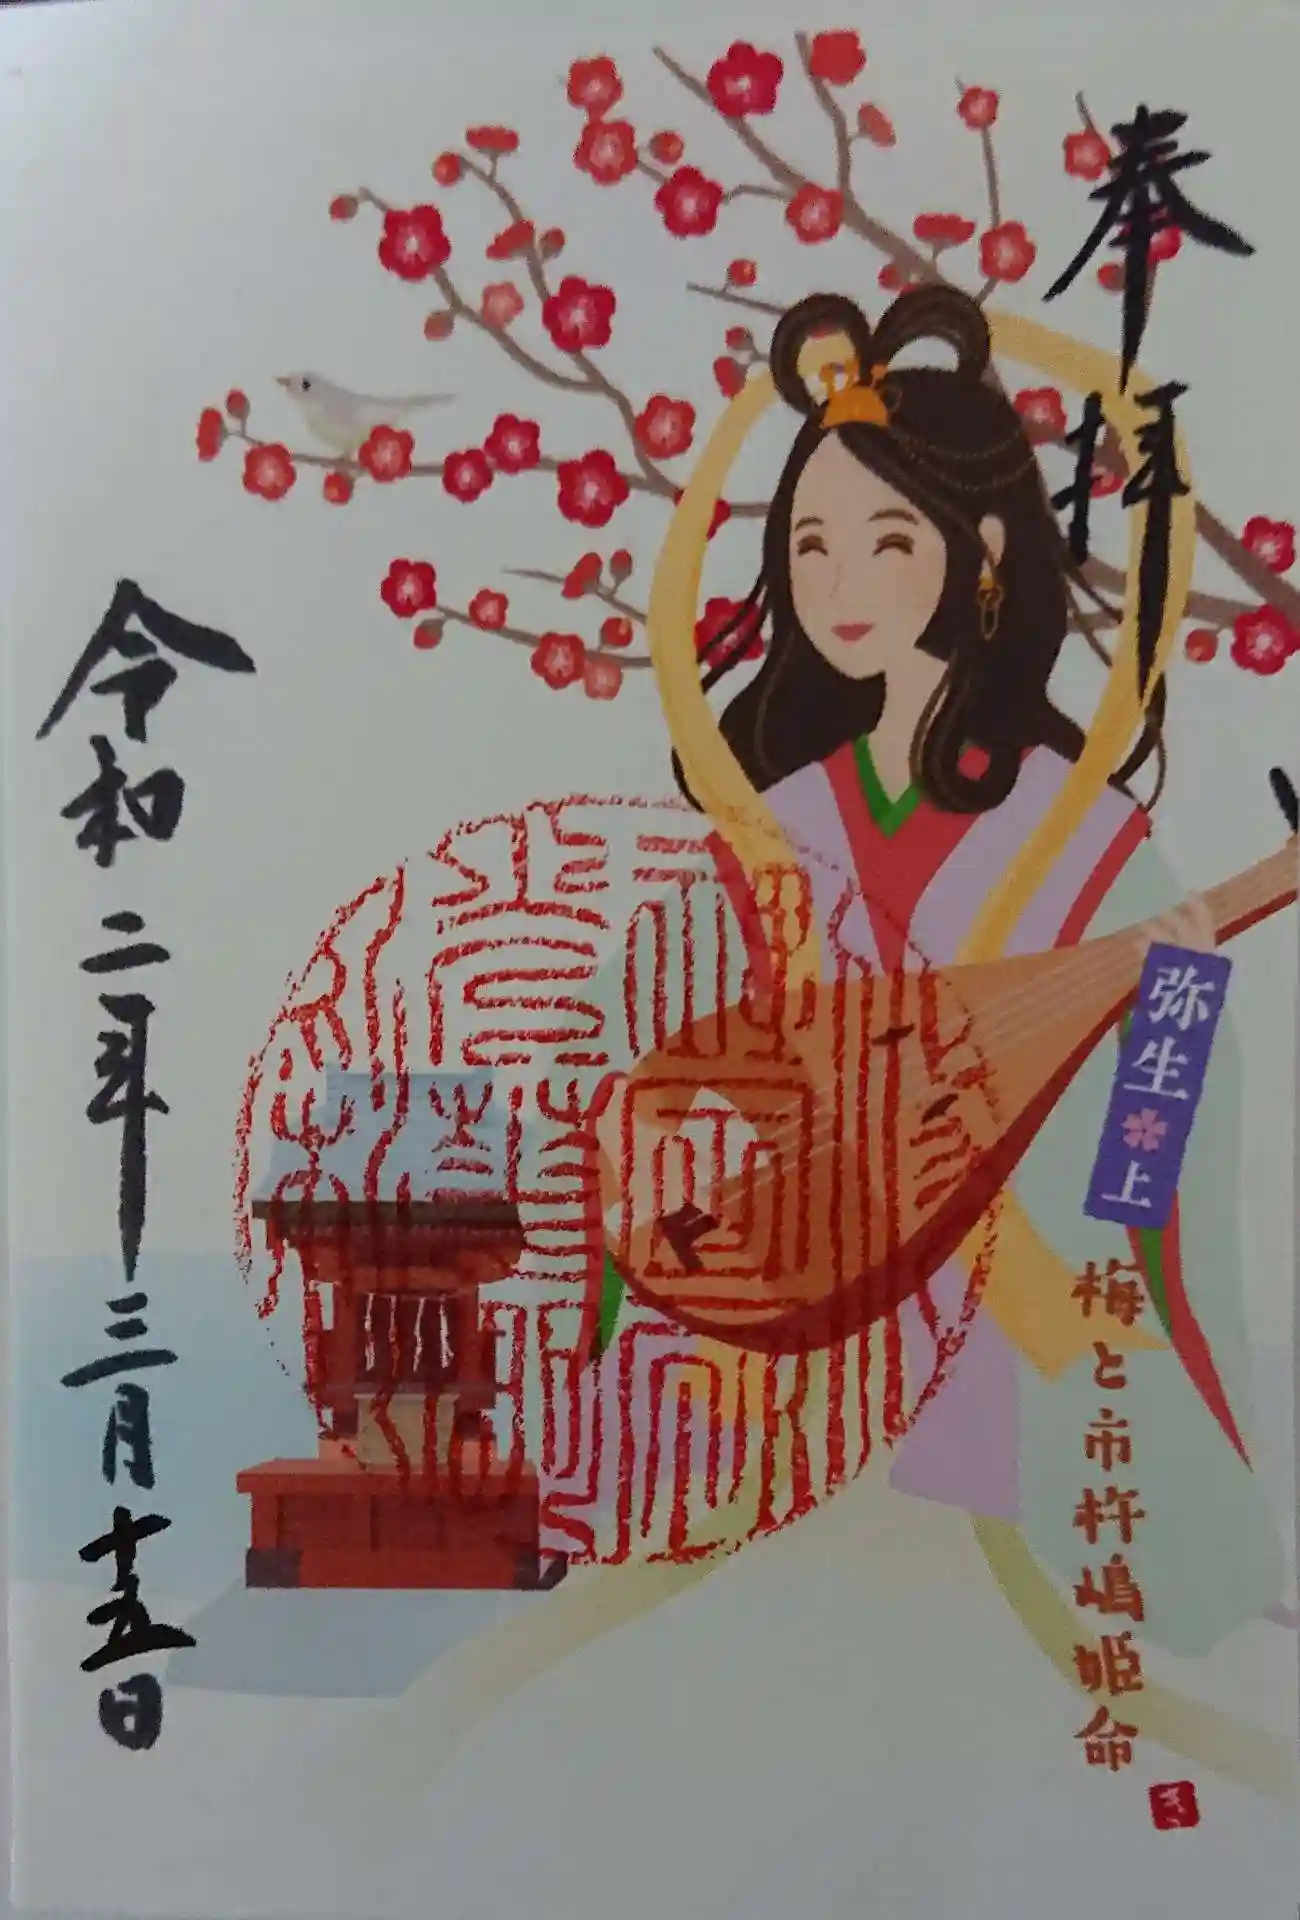 奉拝
弥生上
梅と市杵嶋姫命
令和二年三月十五日